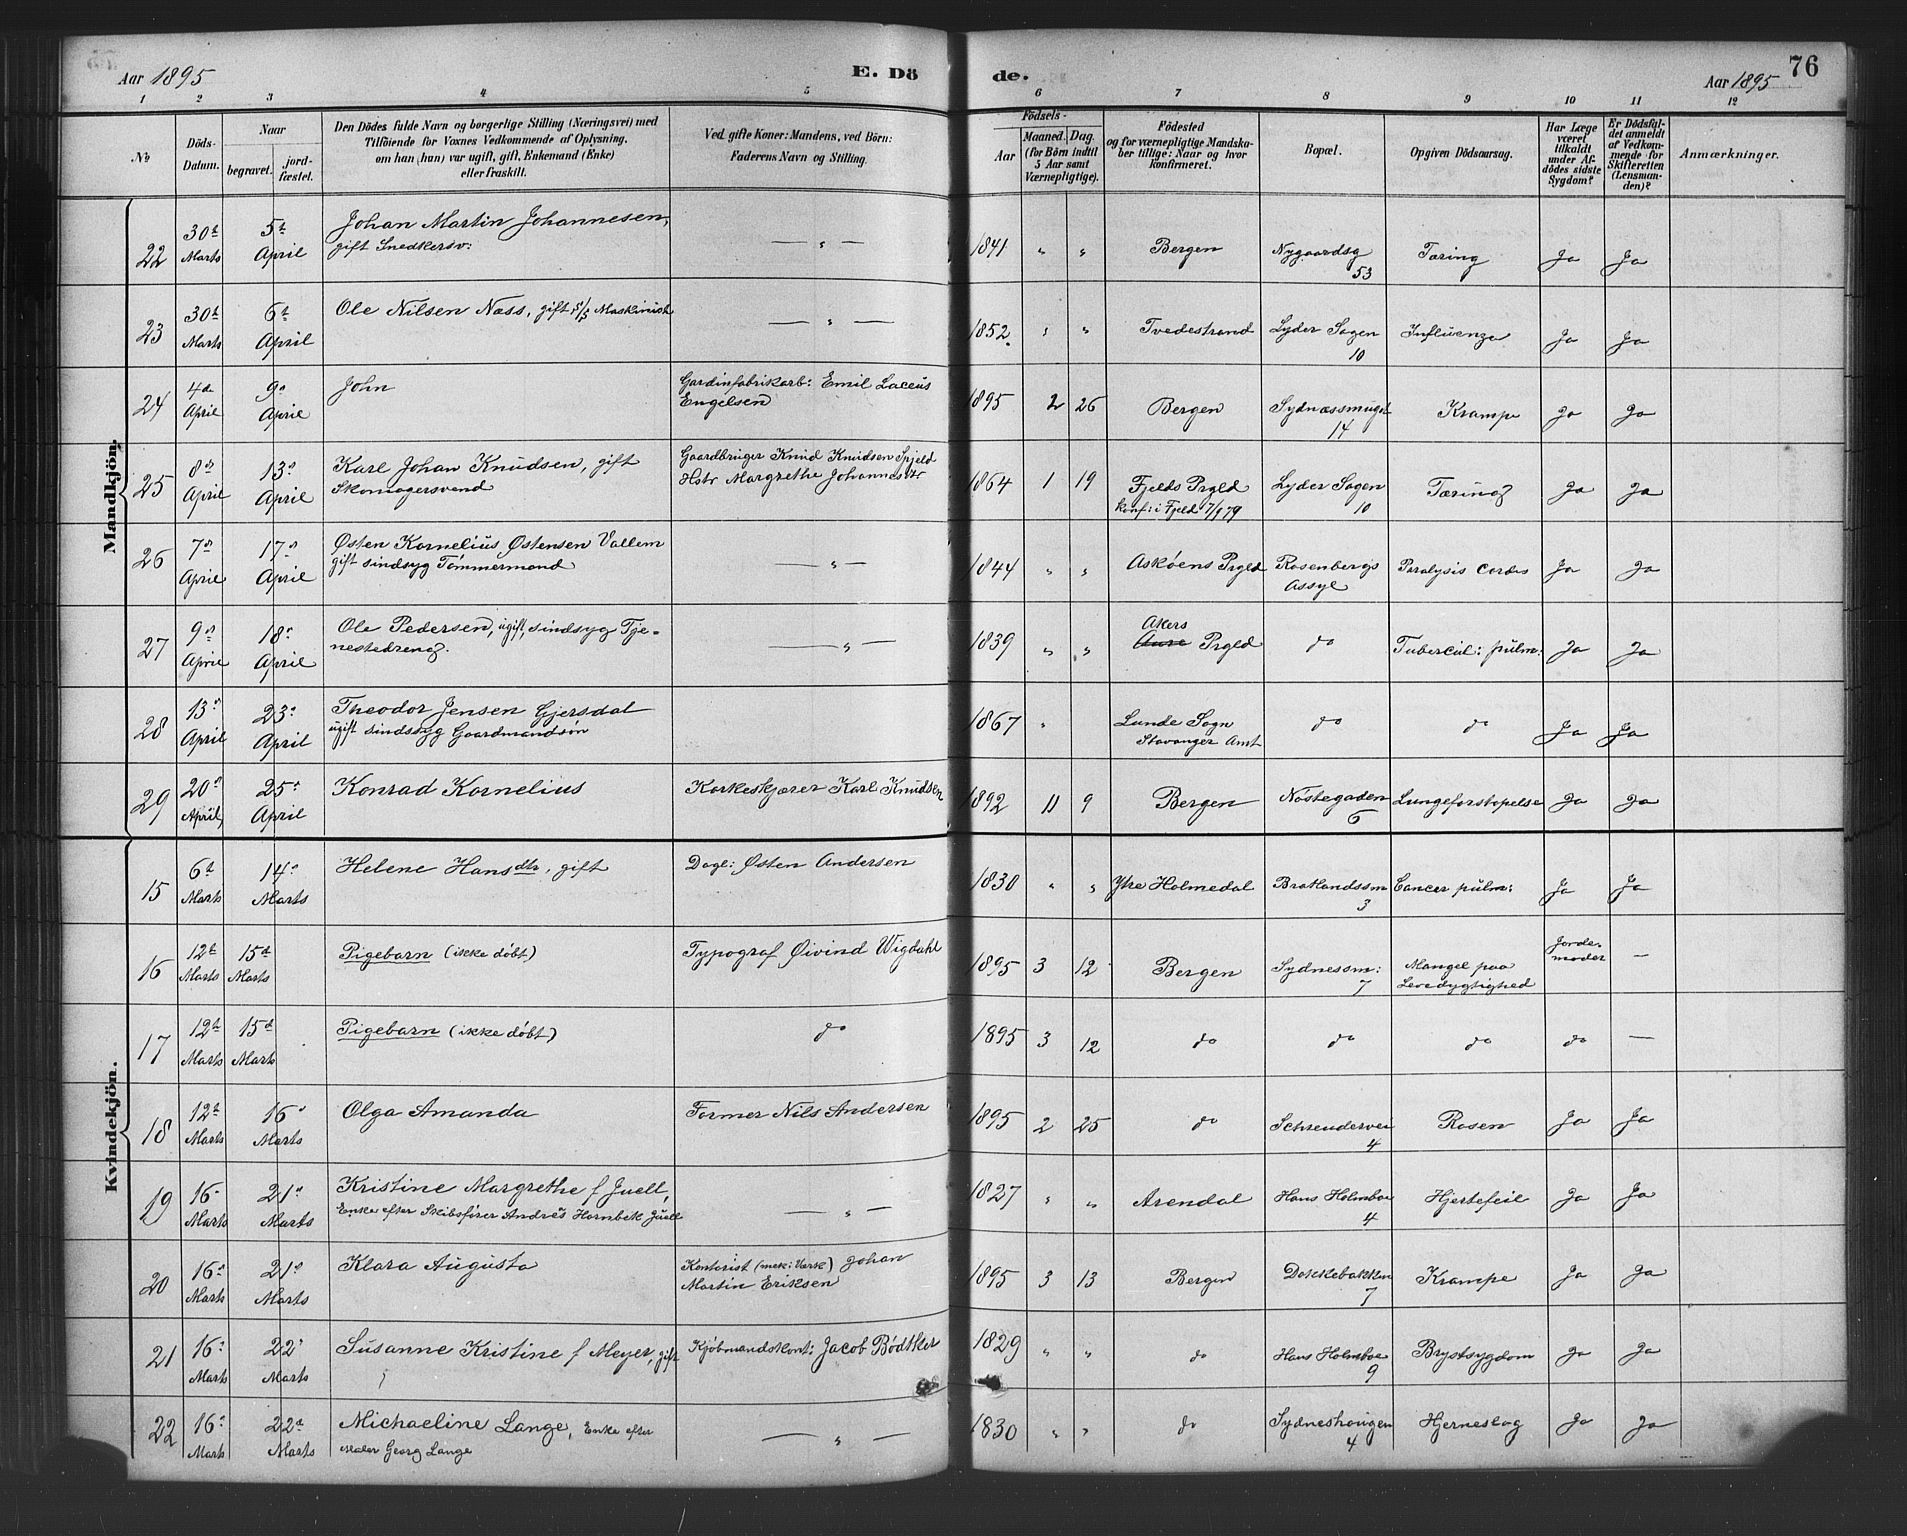 Aar 1895
E. Dö
de.
Aar 1895
76
1 2 3 4 5 6 7 8 9 10 11 12
No
Döds-
Datum.
Naar
begravet.
jord-
fæstet.
Den Dödes fulde Navn og borgerlige Stilling (Næringsvei) med
Tilföiende for Voxnes Vedkommende af Oplysning,
om han (hun) var ugift, gift, Enkemand (Enke)
eller fraskilt.
Ved gifte Koner: Mandens, ved Börn:
Faderens Navn og Stilling.
Födsels-
Aar
Maaned. Dag.
(for Börn indtil
5 Aar samt
Værnepligtige).
Födested
og for værnepligtige Mandska-
ber tillige: Naar og hvor
konfirmeret.
Bopæl.
Opgiven Dödsaarsag.
Har Læge
været
tilkaldt
under Af-
dödes sidste
Sygdom?
Er Dödsfal-
det anmeldt
af Vedkom-
mende for
Skifteretten
(Lensman-
den)?
Anmærkninger.
Mandkjön.
22 30te Marts 5te April Johan Martin Johannesen, — " — 1841 " " Bergen Nygaardsg Tæring Ja Ja
gift Snedkersv: 53
23 30te Marts 6te April Ole Nilsen Næss, gift s/s Maskinist — " — 1852. " " Tvedestrand Lyder Sagen Influenza Ja Ja
10
24 4de April 9de April John Gardinfabrikarb: Emil Laceus 1895 2 26 Bergen Sydnæssmuget Krampe Ja Ja
Engelsen 14
25 8de April 13de April Karl Johan Knudsen, gift Gaardbruger Knud Knudsen Spjeld 1864 1 19 Fjelds Prgld Lyder Sagen Tæring Ja Ja
Skomagersvend Hstr Margrethe Johannesdtr konf: i Fjeld 7/9 79 10
26 7de April 17de April Østen Kornelius Østensen Vallem — " — 1844 " " Askøens Prgld Rosenbergs Paralysis cordis Ja Ja
gift sindsyg Tømmermand Assyl
27 9de April 18de April Ole Pedersen, ugift, sindsyg Tje- — " — 1839 " " Akers Prgld do Tubercul: pulm: Ja Ja
nestedreng. Aure
28 13de April 23de April Theodor Jensen Gjersdal 1867 " Lunde Sogn do do Ja Ja
ugift sindssyg Gaardmandsøn Stavanger Amt
29 20de April 25de April Konrad Kornelius Korkeskjærer Karl Knudsen 1892 11 9 Bergen Nøstegaden Lungeforstopelse Ja Ja
6
Kvindekjön.
15 6te Marts 14de Marts Helene Hansdtr, gift Dagl: Østen Andersen 1830 " " Ytre Holmedal Bratlandssm Cancer pulm: Ja Ja
3
16 12te Marts 15de Marts Pigebarn (ikke døbt) Typograf Øivind Wigdahl 1895 3 12 Bergen Sydnessm: Mangel paa Jorde- —
7 Levedygtighed moder
17 12te Marts 15de Marts Pigebarn (ikke døbt) do 1895 3 12 do do do do —
18 12te Marts 16de Marts Olga Amanda Former Nils Andersen 1895 2 25 do Schrendervei Rosen Ja Ja
4
19 16de Marts 21de Marts Kristine Margrethe f Juell, — " — 1827 " " Arendal Hans Holmboe Hjertefeil Ja Ja
Enke efter Skibsfører Andreas Hornbek Juell 4
20 16de Marts 21de Marts Klara Augusta Kontorist (mek: Værk) Johan 1895 3 13 Bergen Dokkebakken Krampe Ja Ja
Martin Eriksen 7
21 16de Marts 22de Marts Susanne Kristine f Meyer, gift Kjøbmandskont: Jacob Bødtker 1829 " " do Hans Holmboe Brystsygdom Ja Ja
9
22 16de Marts 22de Marts Michaeline Lange, Enke efter — " — 1830 " " do Sydneshaugen Hjerneslag Ja Ja
Maler Georg Lange 4